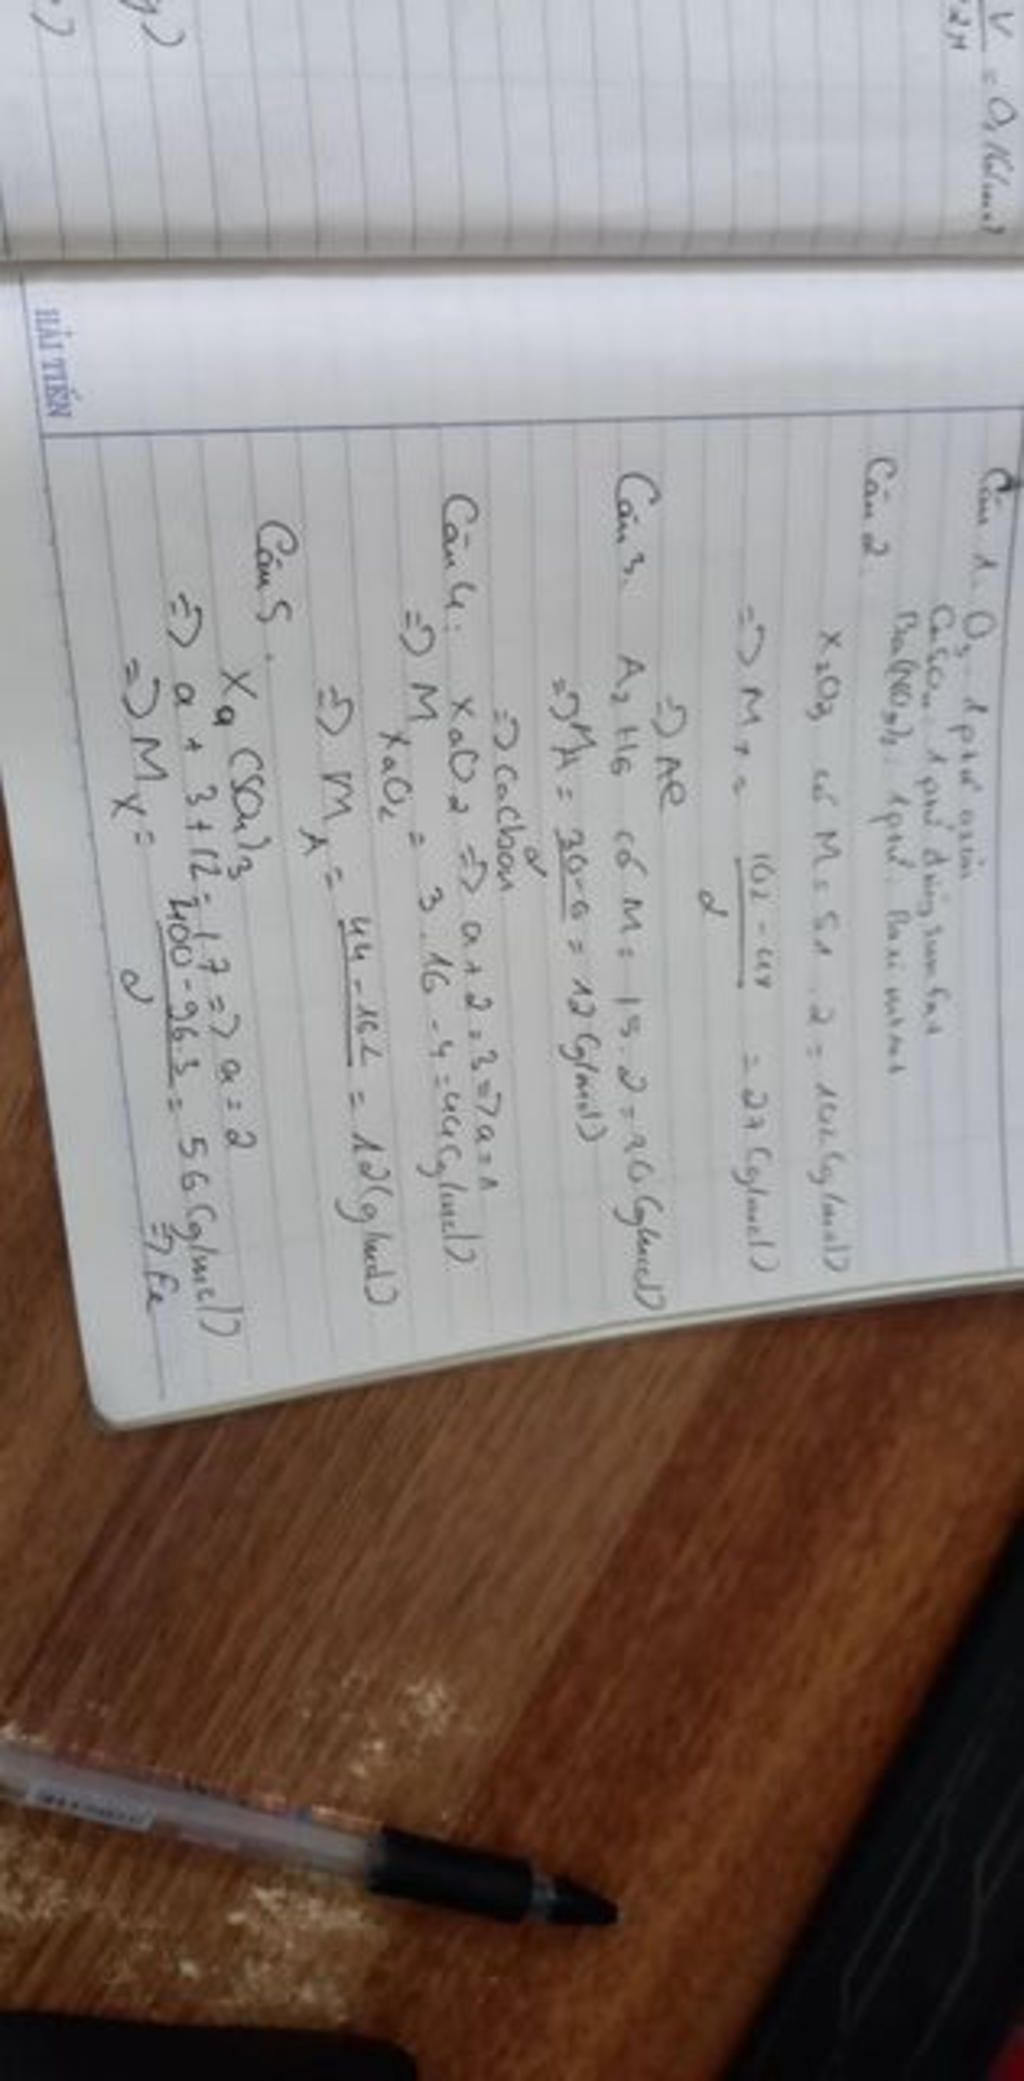 V/2M = 0,1(mol)
g)
Câu 1. O3 - 1 ptử
CuSO4: 1 ptử đồng sunfat
Ba(NO3)2: 1ptử Bari nitrat
Câu 2.
X2O3 có M = 51.2 = 102(g/mol)
=> M = (102-48)/2 = 27(g/mol)
=> Al
Câu 3. A2H6 có M = 15.2 = 30(g/mol)
=> MA = (30-6)/2 = 12(g/mol)
=> Cacbon
Câu 4: XaO2 => a+2=3 => a=1
=> MXaO2 = 3.16-4 = 44(g/mol)
=> MA = 44-16.2 = 12(g/mol)
Câu 5. Xa(SO4)3
=> a+3+12=17 => a=2
=> MX = (400-96.3)/2 = 56(g/mol)
=> Fe
HẢI TIẾN